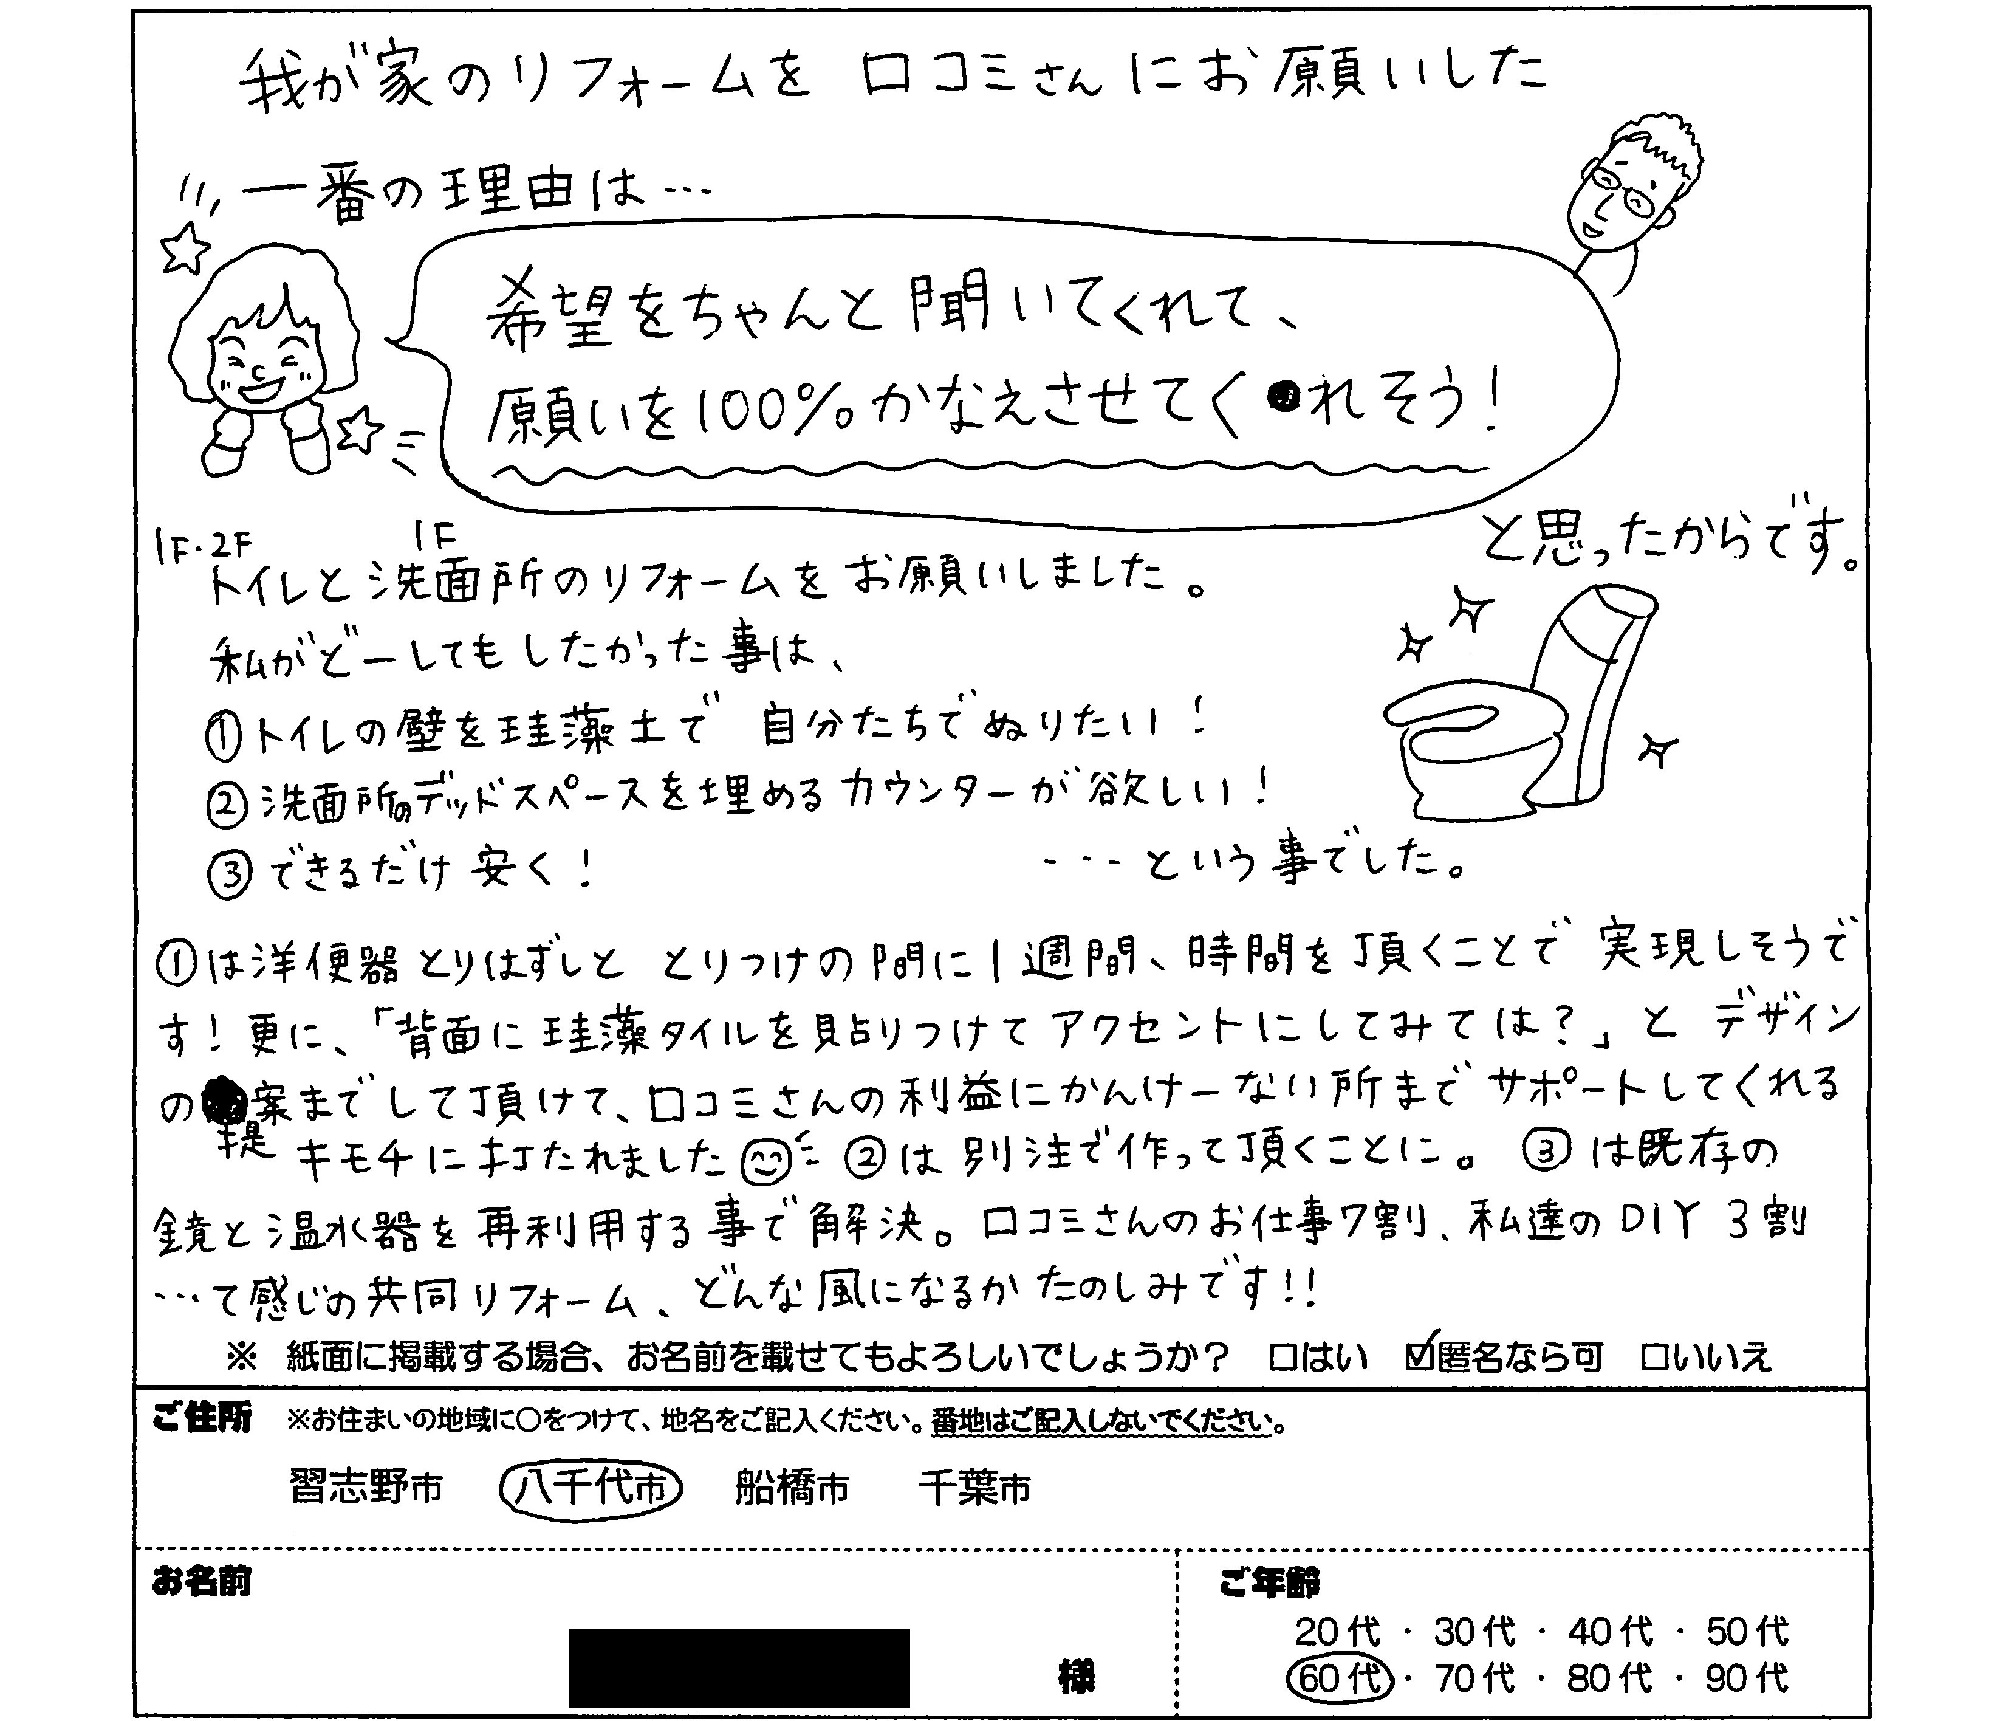 我が家のリフォームを 口コミさんにお願いした
一番の理由は…
希望をちゃんと聞いてくれて、
願いを100%かなえさせてくれそう!
と思ったからです。
1F・2F 1F
トイレと洗面所のリフォームをお願いしました。
私がどーしてもしたかった事は、
①トイレの壁を珪藻土で 自分たちでぬりたい!
②洗面所のデッドスペースを埋めるカウンターが欲しい!
③できるだけ安く! ---という事でした。
①は洋便器とりはずしと とりつけの間に1週間、時間を頂くことで 実現しそうで
す!更に、「背面に珪藻タイルを貼りつけてアクセントにしてみては?」と デザイン
の提案までして頂けて、口コミさんの利益にかんけーない所までサポートしてくれる
キモチに打たれました ②は別注で作って頂くことに。③は既存の
鏡と温水器を再利用する事で解決。口コミさんのお仕事7割、私達のDIY 3割
…て感じの共同リフォーム、どんな風になるか たのしみです!!
※ 紙面に掲載する場合、お名前を載せてもよろしいでしょうか? □はい ☑匿名なら可 □いいえ
ご住所 ※お住まいの地域に○をつけて、地名をご記入ください。番地はご記入しないでください。
習志野市 八千代市 船橋市 千葉市
お名前 ご年齢
20代・30代・40代・50代
様 60代・70代・80代・90代